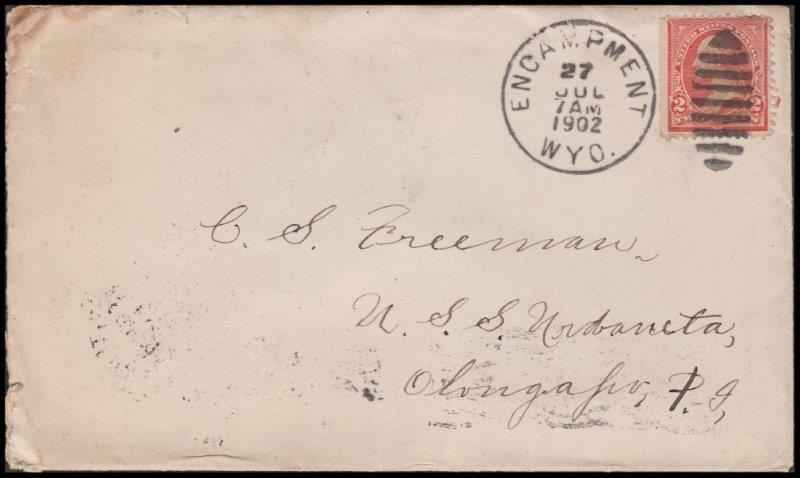 ENCAMPMENT
27
JUL
7 AM
1902
WYO.
UNITED STATES POSTAGE
2 2
C. S. Freeman
U. S. S. Urdaneta,
Olongapo, P. I,